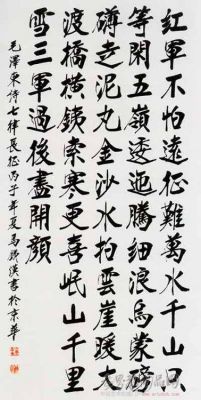 紅軍不怕遠征難萬水千山只
等閑五嶺逶迤騰細浪烏蒙磅
礴走泥丸金沙水拍雲崖暖大
渡橋橫銕索寒更喜岷山千里
雪三軍過後盡開顏
毛澤東詩七律長征丙子年夏馬書於京華